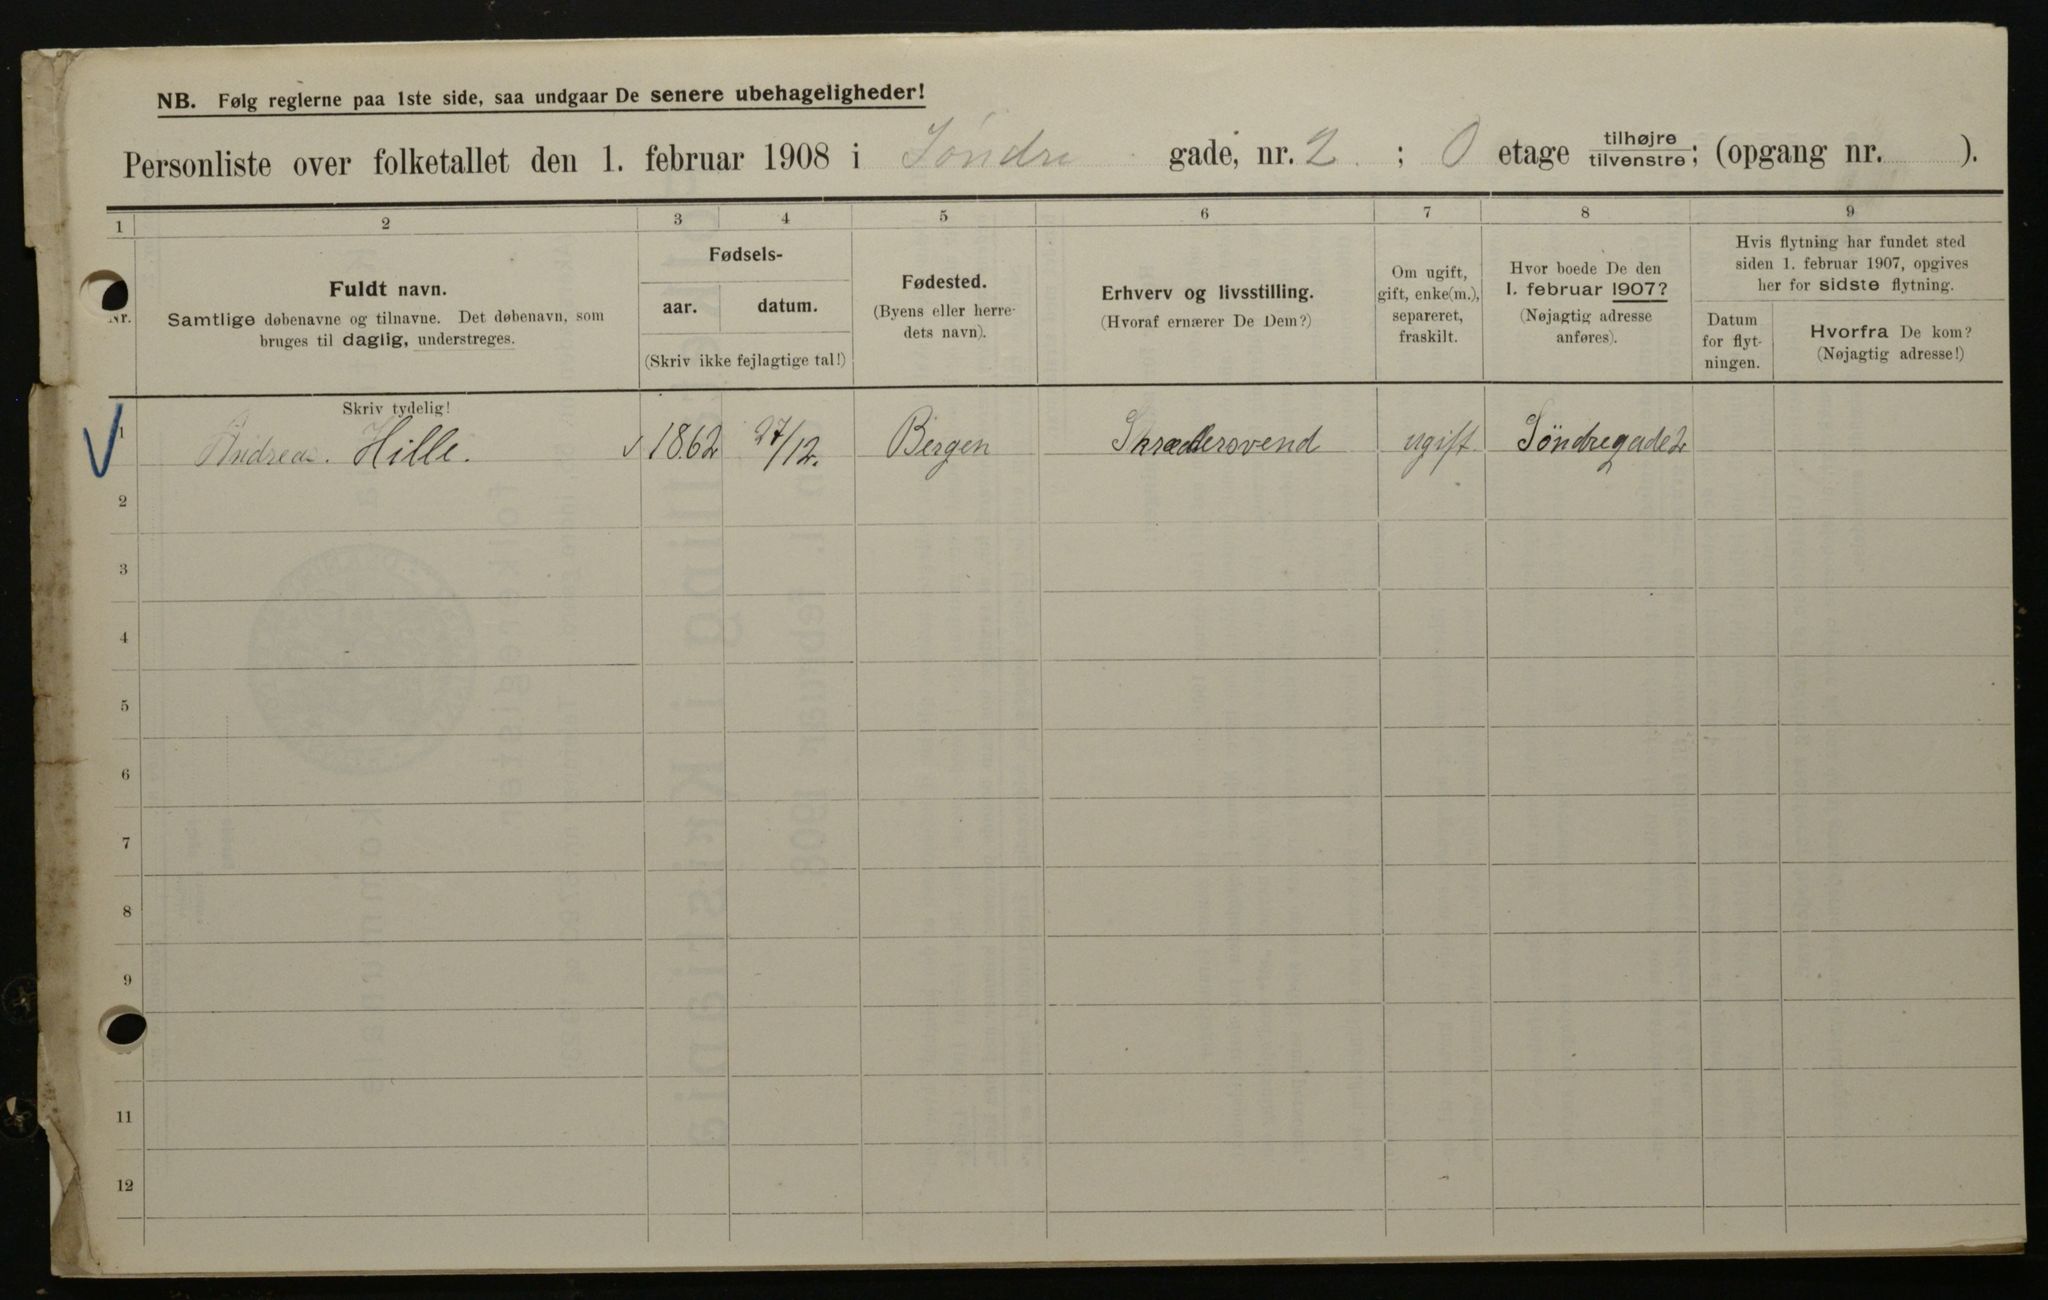 NB. Følg reglerne paa 1ste side, saa undgaar De senere ubehageligheder!
Personliste over folketallet den 1. februar 1908 i Søndre gade, nr. 2 ; 0 etage tilhøjre/tilvenstre; (opgang nr. ).
1 2 3 4 5 6 7 8 9
Nr.
Fuldt navn.
Samtlige døbenavne og tilnavne. Det døbenavn, som
bruges til daglig, understreges.
Fødsels-
aar. datum.
(Skriv ikke fejlagtige tal!)
Fødested.
(Byens eller herre-
dets navn).
Erhverv og livsstilling.
(Hvoraf ernærer De Dem?)
Om ugift,
gift, enke(m.),
separeret,
fraskilt.
Hvor boede De den
1. februar 1907?
(Nøjagtig adresse
anføres).
Hvis flytning har fundet sted
siden 1. februar 1907, opgives
her for sidste flytning.
Datum
for flyt-
ningen.
Hvorfra De kom?
(Nøjagtig adresse!)
Skriv tydelig!
1 Andreas. Hille. 1862 27/12. Bergen Skræddersvend ugift Søndregade 2
2
3
4
5
6
7
8
9
11
12